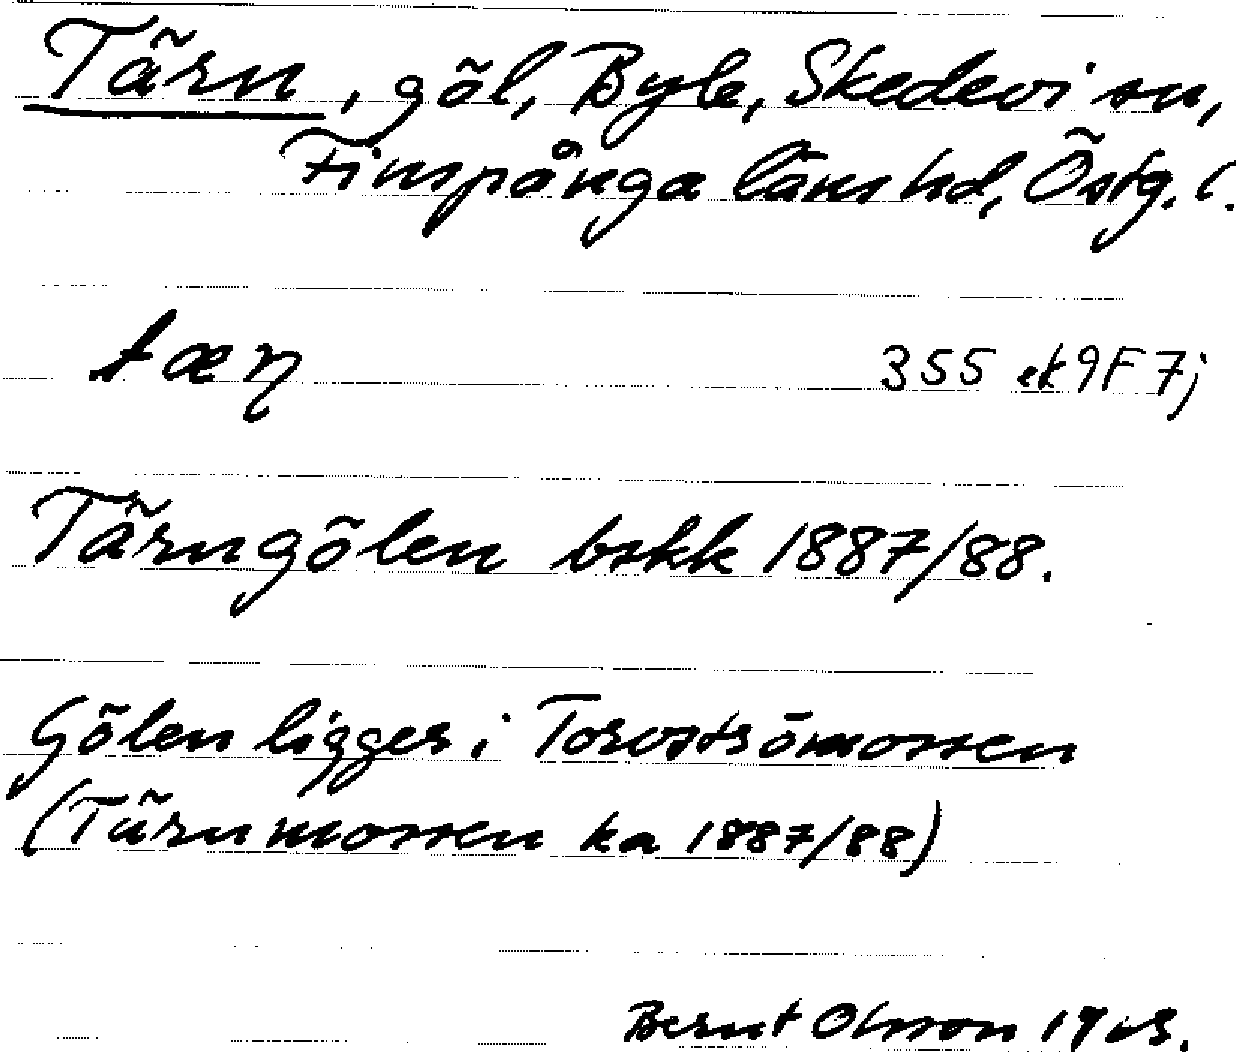 Tärn, göl, Byle, Skedevi sn,
Finspånga läns hd, Östg. l.
tæɳ 355 ek 9F7j
Tärngölen bskk 1887/88.
Gölen ligger i Torvströmossen
(Tärnmossen ka 1887/88)
Bernt Olsson